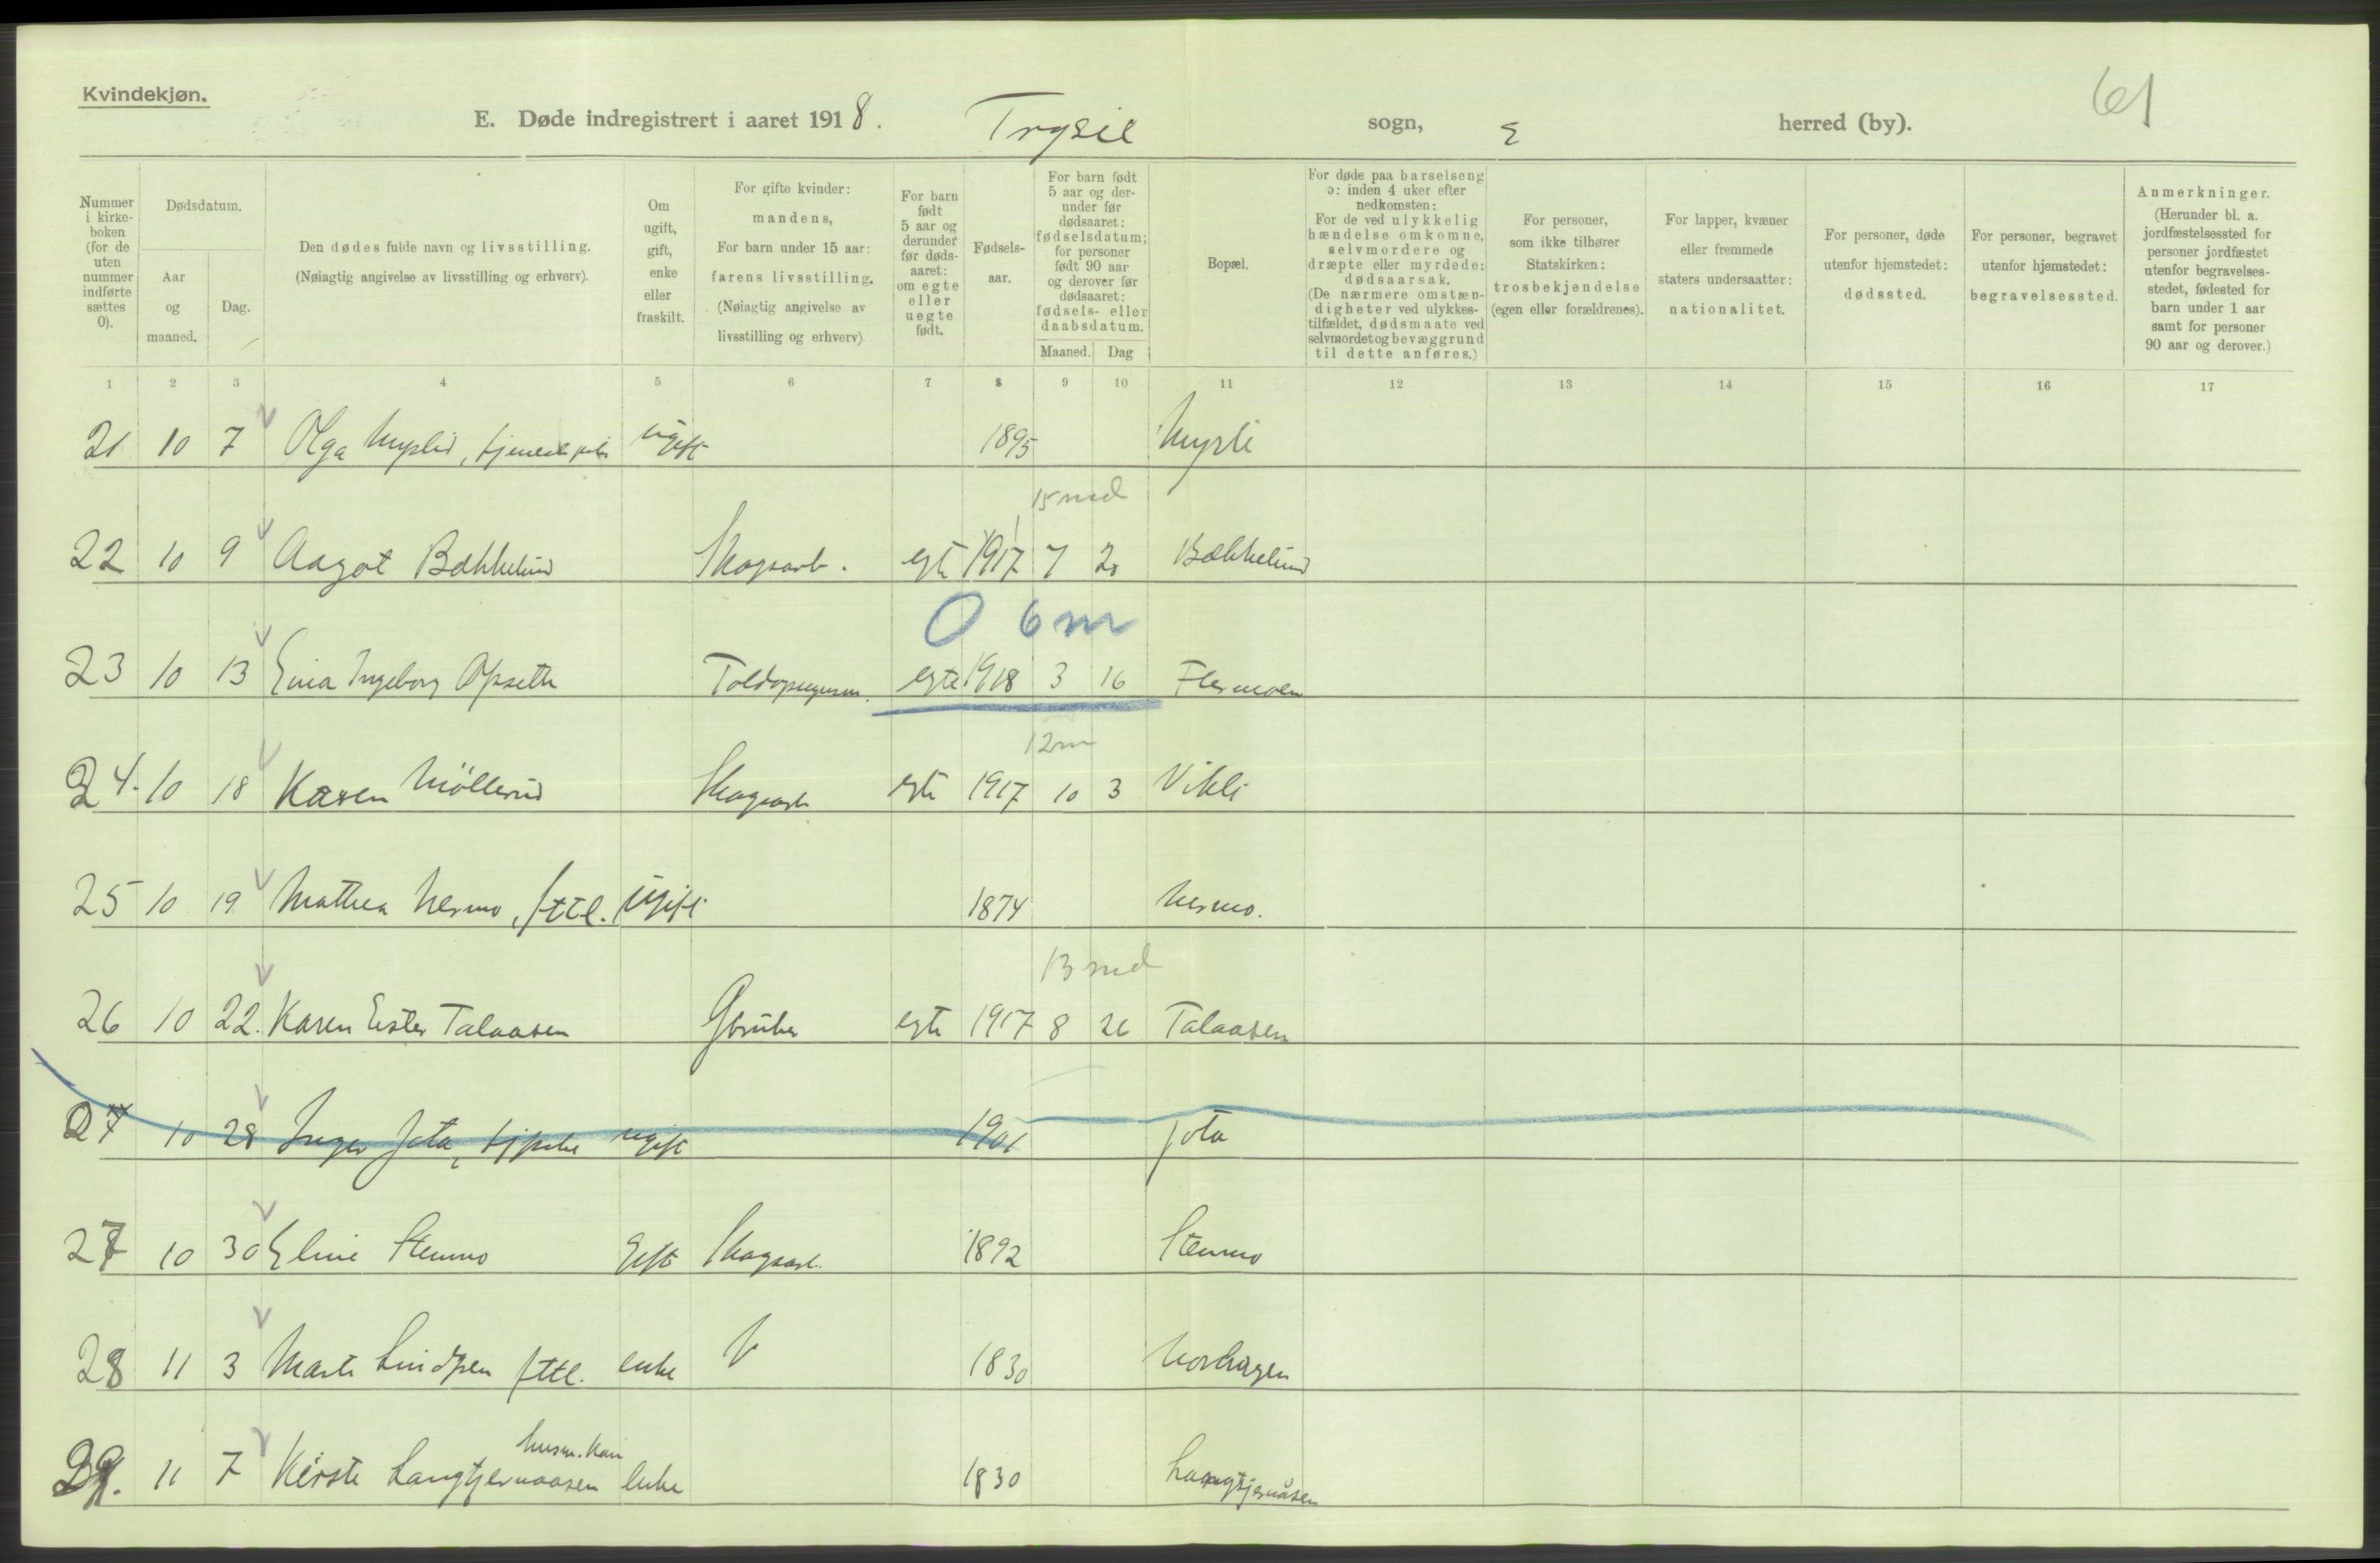 Kvindekjøn.
61
E. Døde indregistrert i aaret 1918. Trysil sogn, herred (by).
Nummer i kirkeboken (for de uten nummer indførte sættes 0).
Dødsdatum.
Aar og maaned.
Dag.
Den dødes fulde navn og livsstilling. (Nøiagtig angivelse av livsstilling og erhverv).
Om ugift, gift, enke eller fraskilt.
For gifte kvinder: mandens, For barn under 15 aar: farens livsstilling. (Nøiagtig angivelse av livsstilling og erhverv)
For barn født 5 aar og derunder før dødsaaret: om egte eller uegte født.
Fødselsaar.
For barn født 5 aar og derunder før dødsaaret: fødselsdatum; for personer født 90 aar og derover før dødsaaret: fødsels- eller daabsdatum.
Maaned. Dag
Bopæl.
For døde paa barselseng ɔ: inden 4 uker efter nedkomsten: For de ved ulykkelig hændelse omkomne, selvmordere og dræpte eller myrdede: dødsaarsak. (De nærmere omstændigheter ved ulykkestilfældet, dødsmaate ved selvmordet og bevæggrund til dette anføres.)
For personer, som ikke tilhører Statskirken: trosbekjendelse (egen eller forældrenes).
For lapper, kvæner eller fremmede staters undersaatter: nationalitet.
For personer, døde utenfor hjemstedet: dødssted.
For personer, begravet utenfor hjemstedet: begravelsessted.
Anmerkninger. (Herunder bl. a. jordfæstelsessted for personer jordfæstet utenfor begravelsesstedet, fødested for barn under 1 aar samt for personer 90 aar og derover.)
1 2 3 4 5 6 7 8 9 10 11 12 13 14 15 16 17
21 10 7 Olga Myrlid, ugift 1895 Myrli
15 md
22 10 9 Aagot Bækkelund Skogsarb. egte 1917 7 20 Bækkelund
0 6 m
23 10 13 Ingeborg Opseth egte 1918 3 16 Flermoen
12 m
24. 10 18 Karen Möllerud Skogsarb egte 1917 10 3 Vikli
25 10 19 Mathea Nesmo, fttl. ugift 1874 Nesmo.
13 md
26 10 22. Karen Ester Talaasen Gbruker egte 1917 8 26 Talaasen
27 10 28 Inger Jota, ugift 1901 Jota
27 10 30 Eline Stenmo Gift Skogsarb. 1892 Stenmo
28 11 3 Marte Lindgren fttl. enke 1830 Norhagen
husm. kon
29. 11 7 Kirste Langtjernaasen enke 1830 Langtjernåsen